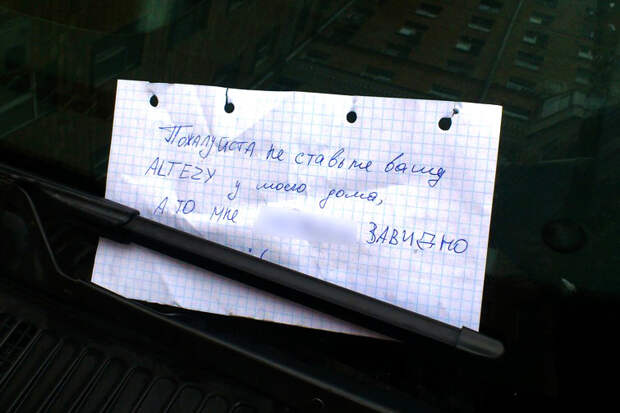 Пожалуйста не ставьте вашу
ALTEZY у моего дома,
А ТО МНЕ ЗАВИДНО
:(